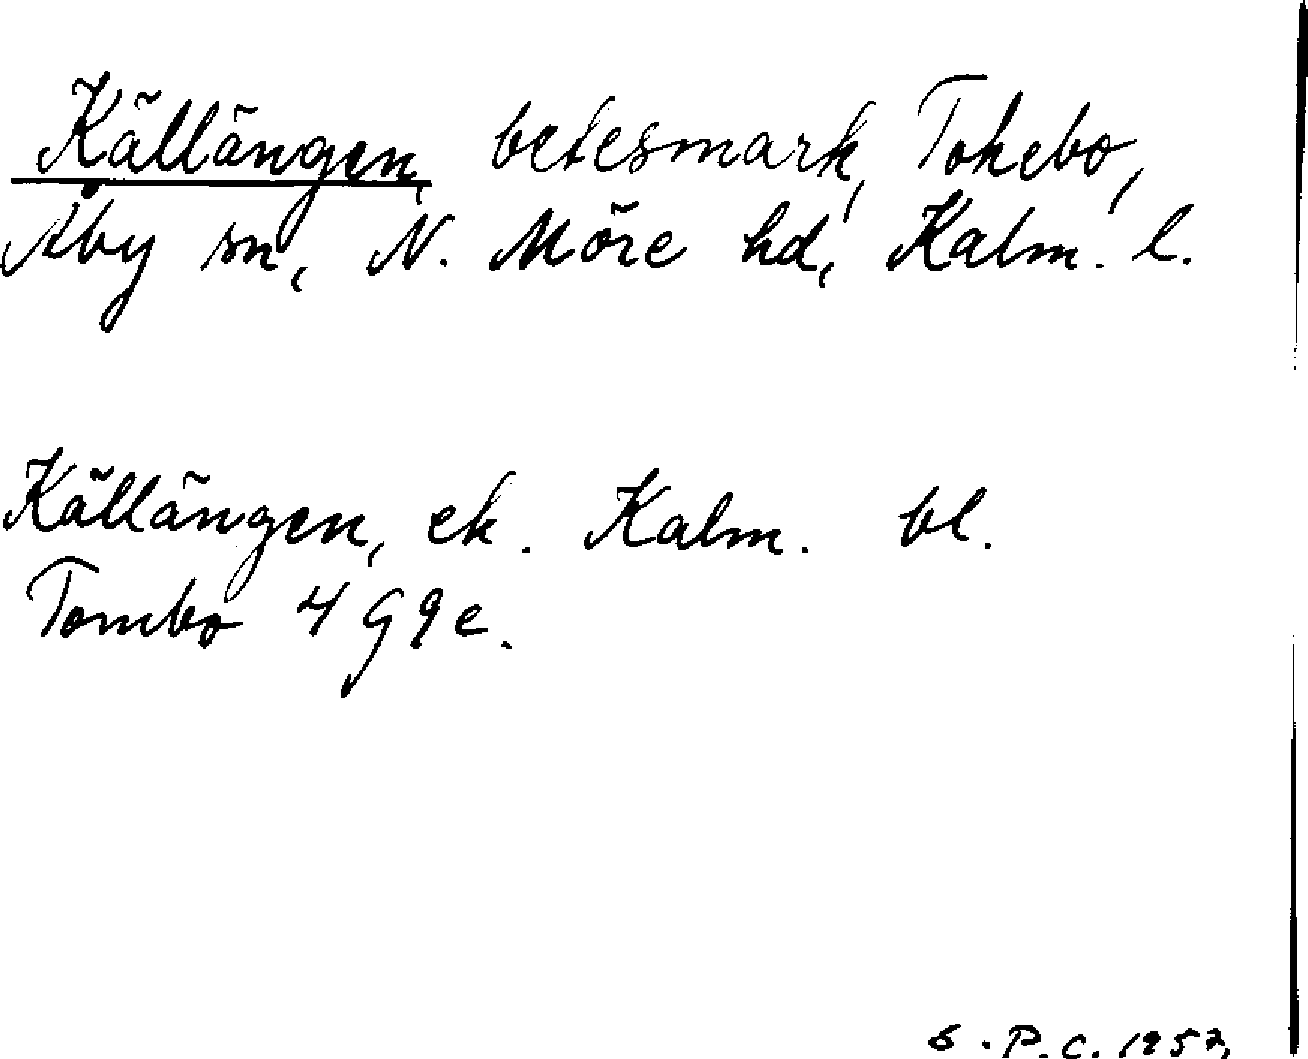 Källängen, betesmark, Tokebo,
Åby sn, N. Möre hd, Kalm. l.
Källängen, ek. Kalm. bl.
Tombo 4 G 9 e.
S. P. C. 1957,